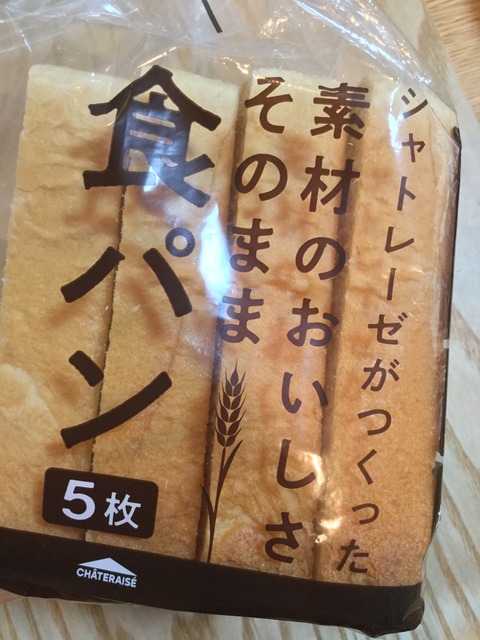 シャトレーゼがつくった
素材のおいしさ
そのまま
食パン
5枚
CHÂTERAISÉ